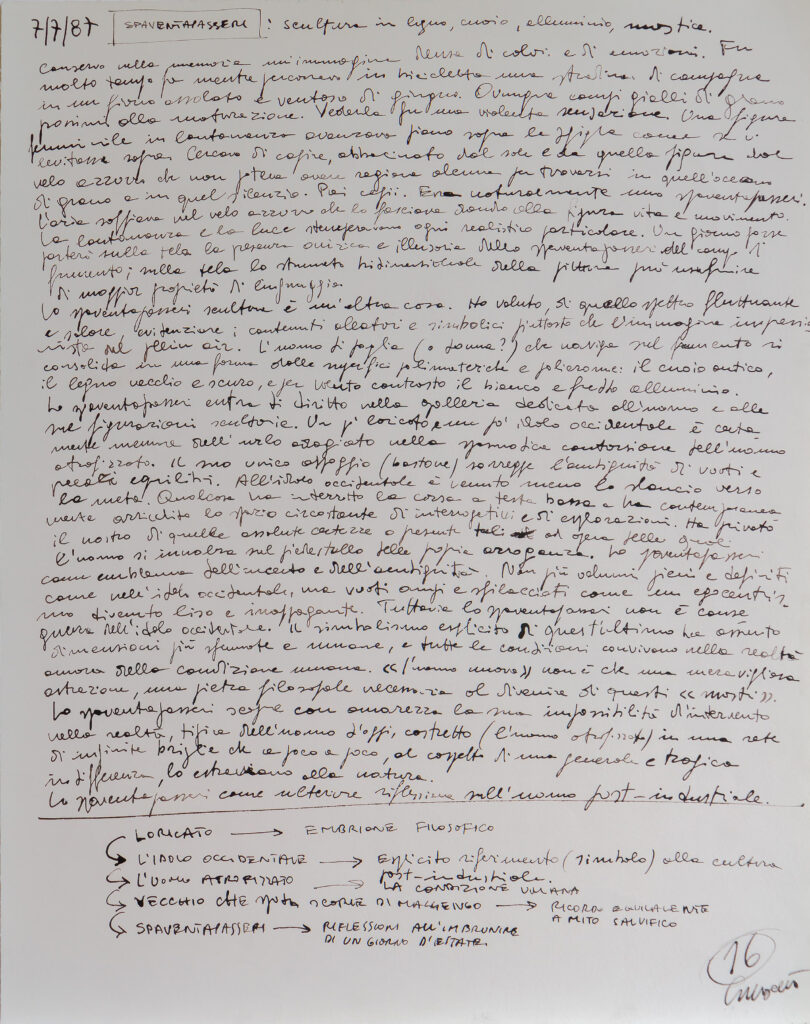 7/7/87 SPAVENTAPASSERI : scultura in legno, cuoio, alluminio, mastice.
Conservo nella memoria un'immagine densa di colori e di emozioni. Fu
molto tempo fa mentre percorrevo in bicicletta una stradina di campagna
in un giorno assolato e ventoso di giugno. Ovunque campi gialli di grano
prossimi alla maturazione. Vederla fu una violenta sensazione. Una figura
femminile in lontananza avanzava piano sopra le spighe come se
levitasse sopra. Cercavo di capire, abbacinato dal sole e da quella figura dal
velo azzurro che non poteva avere ragione alcuna per trovarsi in quell'oceano
di grano e in quel silenzio. Poi capii. Era naturalmente uno spaventapasseri.
L'aria soffiava nel velo azzurro che lo fasciava dando alla figura vita e movimento.
La lontananza e la luce stemperavano ogni realistico particolare. Un giorno forse
porterò sulla tela la presenza onirica e illusoria dello spaventapasseri del campo di
frumento; sulla tela lo strumento bidimensionale della pittura può usufruire
di maggior proprietà di linguaggio.
Lo spaventapasseri scultura è un'altra cosa. Ho voluto, di quello spettro fluttuante
e solare, evidenziare i contenuti aleatori e simbolici piuttosto che l'immagine impressio
nista del plein air. L'uomo di paglia (o donna?) che naviga sul frumento si
consolida in una forma dalle superfici polimateriche e policrome: il cuoio antico,
il legno vecchio e scuro, e per contrasto il bianco e freddo alluminio.
Lo spaventapasseri entra di diritto nella galleria dedicata all'uomo e alle
sue figurazioni scultorie. Un po' loricato e un po' idolo occidentale è certa
mente memore dell'urlo adagiato nella spasmodica contorsione dell'uomo
atrofizzato. Il suo unico appoggio (bastone) sorregge l'ambiguità di vuoti e
precari equilibri. All'idolo occidentale è venuto meno lo slancio verso
la meta. Qualcosa ha interrotto la corsa a testa bassa e ha contemporanea
mente arricchito lo spazio circostante di interrogativi e di esplorazioni. Ha privato
il nostro di quelle assolute certezze a presente tali ad opera delle quali
l'uomo si innalza sul piedestallo della propria arroganza. Lo spaventapasseri
come emblema dell'incerto e dell'ambiguità. Non più volumi pieni e definiti
come nell'idolo occidentale, ma vuoti ampi e sfilacciati come un egocentris-
mo divenuto liso e inappagante. Tuttavia lo spaventapasseri non è conse
guenza dell'idolo occidentale. Il simbolismo esplicito di quest'ultimo ha assunto
dimensioni più sfumate e umane, e tutte le condizioni convivono nella realtà
amara della condizione umana. «L'uomo nuovo» non è che una meravigliosa
astrazione, una pietra filosofale necessaria al divenire di questi «mostri».
Lo spaventapasseri scopre con amarezza la sua impossibilità d'intervento
nella realtà, tipica dell'uomo d'oggi, costretto (l'uomo atrofizzato) in una rete
di infinite briglie che a poco a poco, al cospetto di una generale e tragica
indifferenza, lo estraniano alla natura.
Lo spaventapasseri come ulteriore riflessione sull'uomo post-industriale.
LORICATO → EMBRIONE FILOSOFICO
L'IDOLO OCCIDENTALE → Esplicito riferimento (simbolo) alla cultura
post-industriale.
L'UOMO ATROFIZZATO → LA CONDIZIONE UMANA
VECCHIO CHE SPUTA SCORIE DI MACHENGO → RICORDI EQUIVALENTE
A MITO SALVIFICO
SPAVENTAPASSERI → RIFLESSIONI ALL'IMBRUNIRE
DI UN GIORNO D'ESTATE.
16